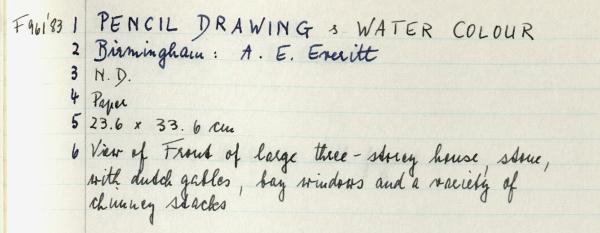 F961'83 1 PENCIL DRAWING & WATER COLOUR
2 Birmingham: A. E. Everitt
3 N.D.
4 Paper
5 23.6 x 33.6 cm
6 View of Front of large three-storey house, stone,
with dutch gables, bay windows and a variety of
chimney stacks